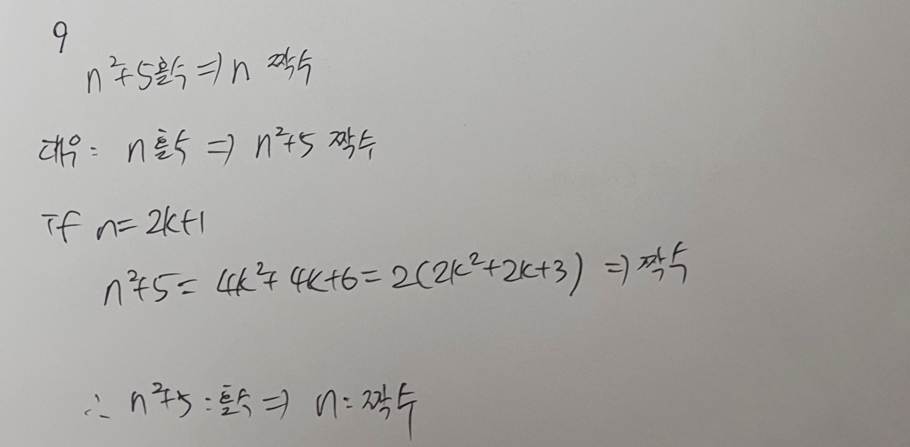 9
n²+5홀수 ⇒ n 짝수
대우: n 홀수 ⇒ n²+5 짝수
if n=2k+1
n²+5 = 4k²+4k+6 = 2(2k²+2k+3) ⇒ 짝수
∴ n²+5 : 홀수 ⇒ n : 짝수